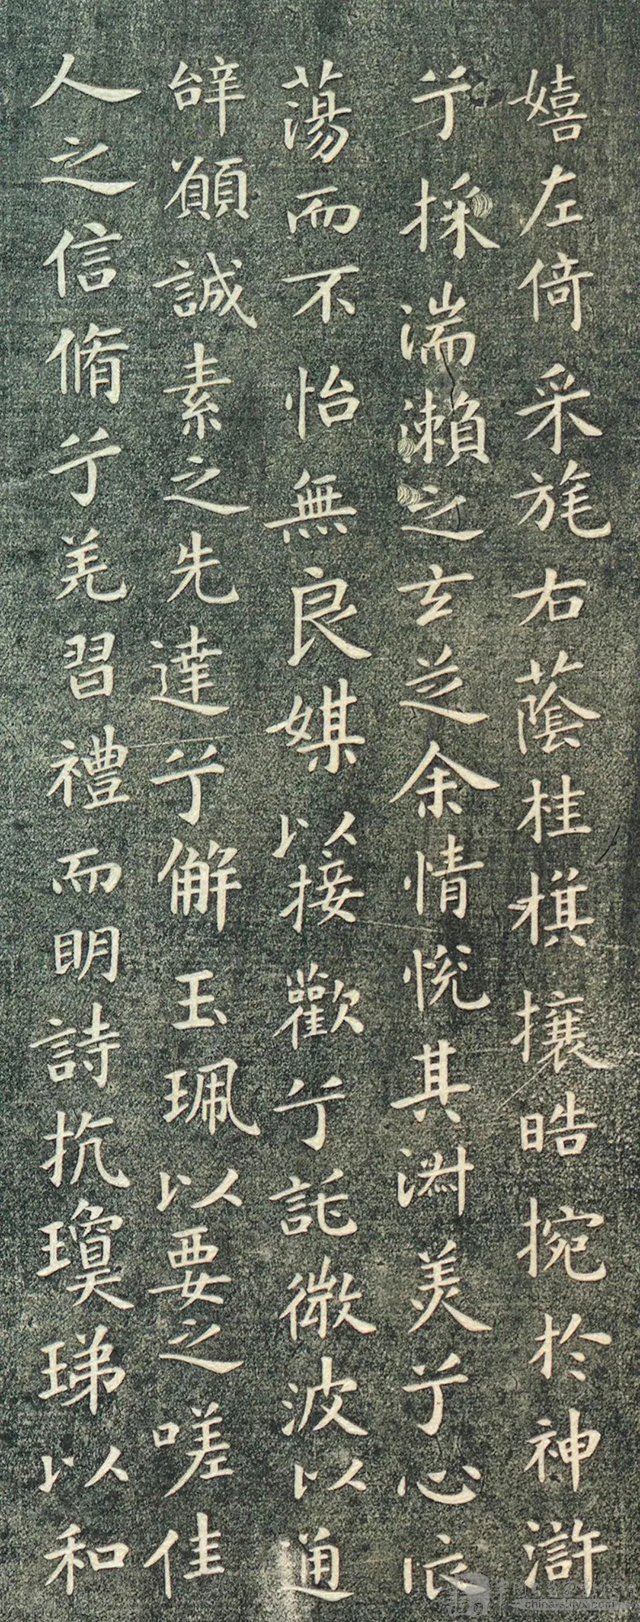 嬉左倚采旄右蔭桂棋攘皓捥於神滸
兮採湍瀨之玄芝余情悅其淵美兮心依
蕩而不怡無良媒以接歡兮託微波以通
辭願誠素之先達兮解玉珮以要之嗟佳
人之信脩兮羌習禮而明詩抗瓊珶以和